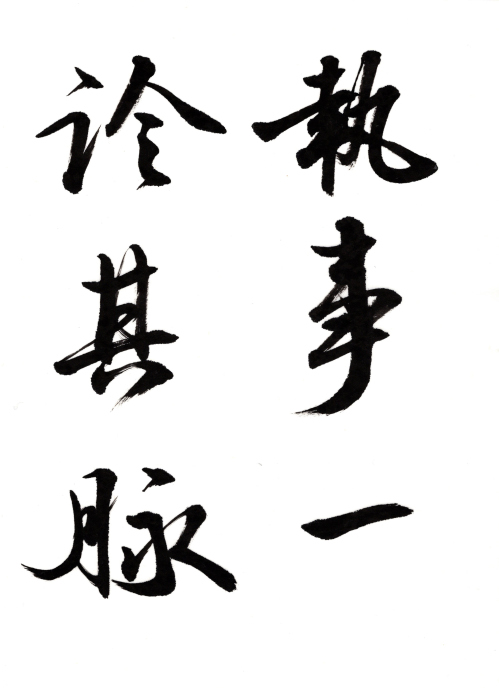 執事一
診其脉